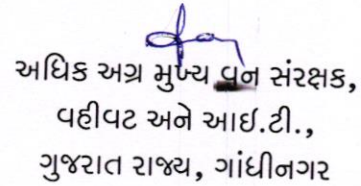 અધિક અગ્ર મુખ્ય વન સંરક્ષક,
વહીવટ અને આઈ.ટી.,
ગુજરાત રાજ્ય, ગાંધીનગર